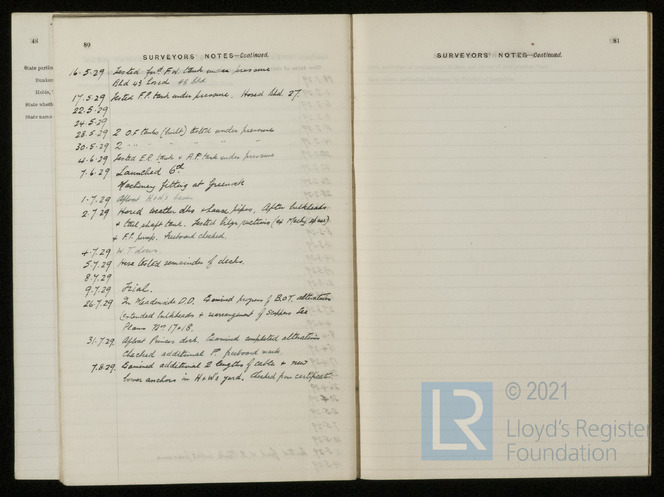 48
State particu
Bunker
Holds,
State wheth
State name
80
SURVEYORS' NOTES—Continued.
16.5.29 Tested for'd F.W. tank under pressure
Bhd 43 hosed.
17.5.29 Tested F.P. tank under pressure. Hosed bhd 27.
22.5.29
24.5.29
28.5.29 2 O.F. tanks (built) tested under pressure
30.5.29 2 " " " " " "
4.6.29 Tested E.R. tank & A.P. tank under pressure
7.6.29 Launched 6th
Machinery fitting at Greenock
1.7.29 Afloat H&W's basin
2.7.29 Hosed weather dks & hawse pipes. After bulkheads
& steel shaft tank. Tested bilge suctions
& F.P. pump. Freeboard checked.
4.7.29 W.T. doors.
5.7.29 Hose tested remainder of decks.
8.7.29
9.7.29 Trial.
26.7.29 In Meadowside D.D. Examined progress of B.O.T. alterations
Extended bulkheads & rearrangement of scuppers See
Plans Nos 17 & 18.
31.7.29 Afloat Princes dock. Examined completed alterations
Checked additional P. freeboard mark.
7.8.29. Examined additional 2 lengths of cable & new
bower anchors in H&W's yard. Checked from certificat
SURVEYORS' NOTES—Continued.
81
LR
© 2021
Lloyd's Register
Foundation